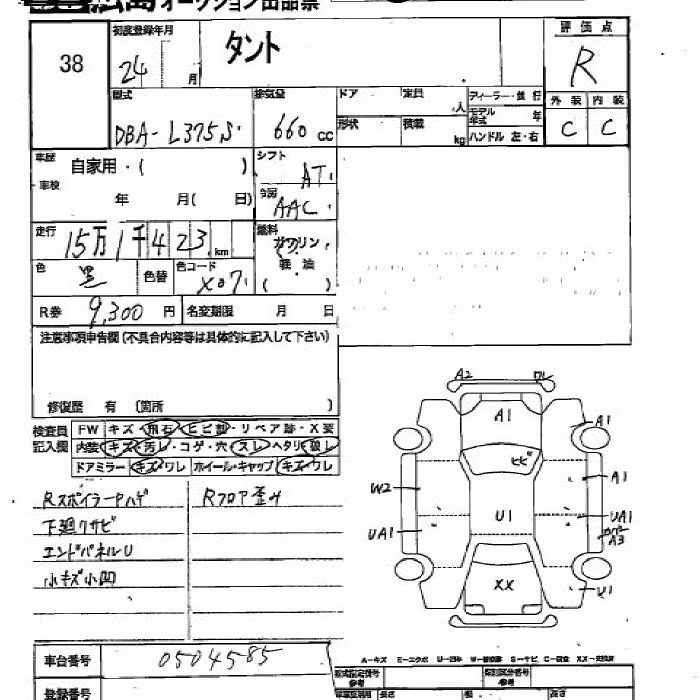 広島 オークション出品票
38
初度登録年月
24 月
タント
評価点
R
外装 内装
C C
型式
DBA-L375S
排気量
660 cc
ドア 定員 人
形状 積載 kg
ディーラー・並行
モデル年式 年
ハンドル 左・右
車歴 自家用・( )
車検 年 月( 日)
シフト
AT
冷房
AAC
走行
15万1千423 km
燃料
ガソリン
軽油
( )
色 黒 色替
色コード X07
R券 9,300 円
名変期限 月 日
注意事項申告欄(不具合内容等は具体的に記入して下さい)
修復歴 有 (箇所 )
検査員記入欄
FW キズ・飛石・ヒビ割・リペア跡・X要
内装 キズ・汚レ・コゲ・穴・スレ・ヘタリ・破レ
ドアミラー キズ・ワレ ホイール・キャップ キズ・ワレ
Rスポイラー Pハゲ
Rフロア歪み
下廻りサビ
エンドパネルU
小キズ小凹
A2 ワレ
A1
A1
ヒビ
A1
W2
U1
UA1
UA1
カバー A3
XX
U1
車台番号 0504585
A-キズ E-エクボ U-凹み W-補修跡 S-サビ C-腐食 XX-交換済
型式指定番号 参考
類別区分番号 参考
登録番号
長さ
幅
高さ